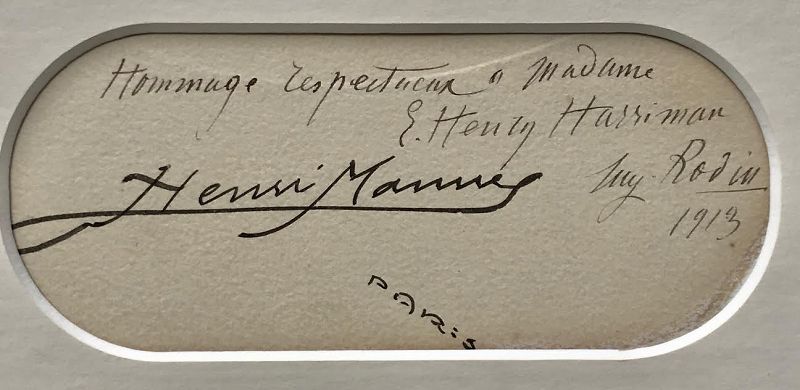 Hommage respectueux a Madame
E. Henry Harriman
Henri Manuel
Aug. Rodin
1913
PARIS